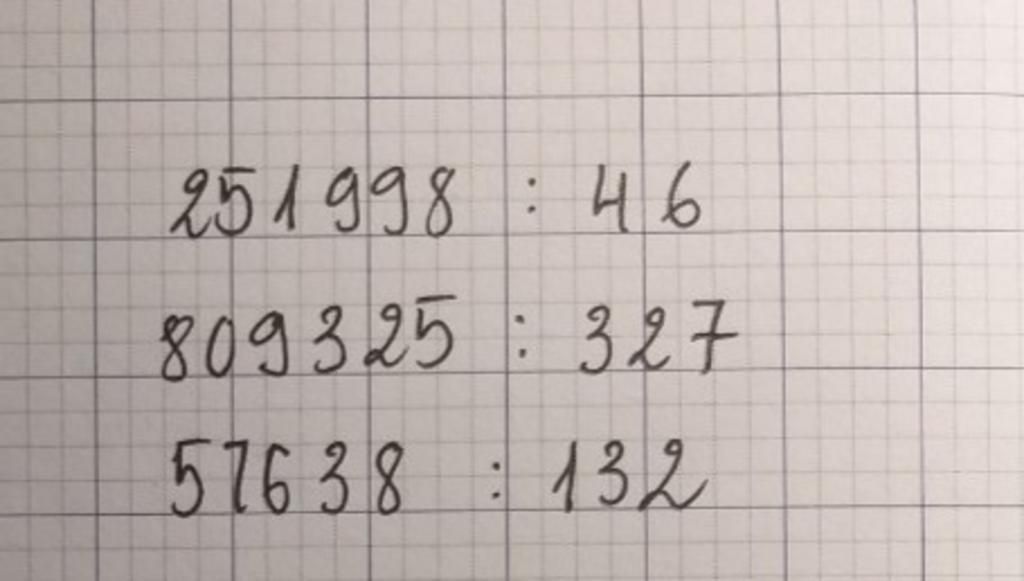 251998 : 46
809325 : 327
57638 : 132